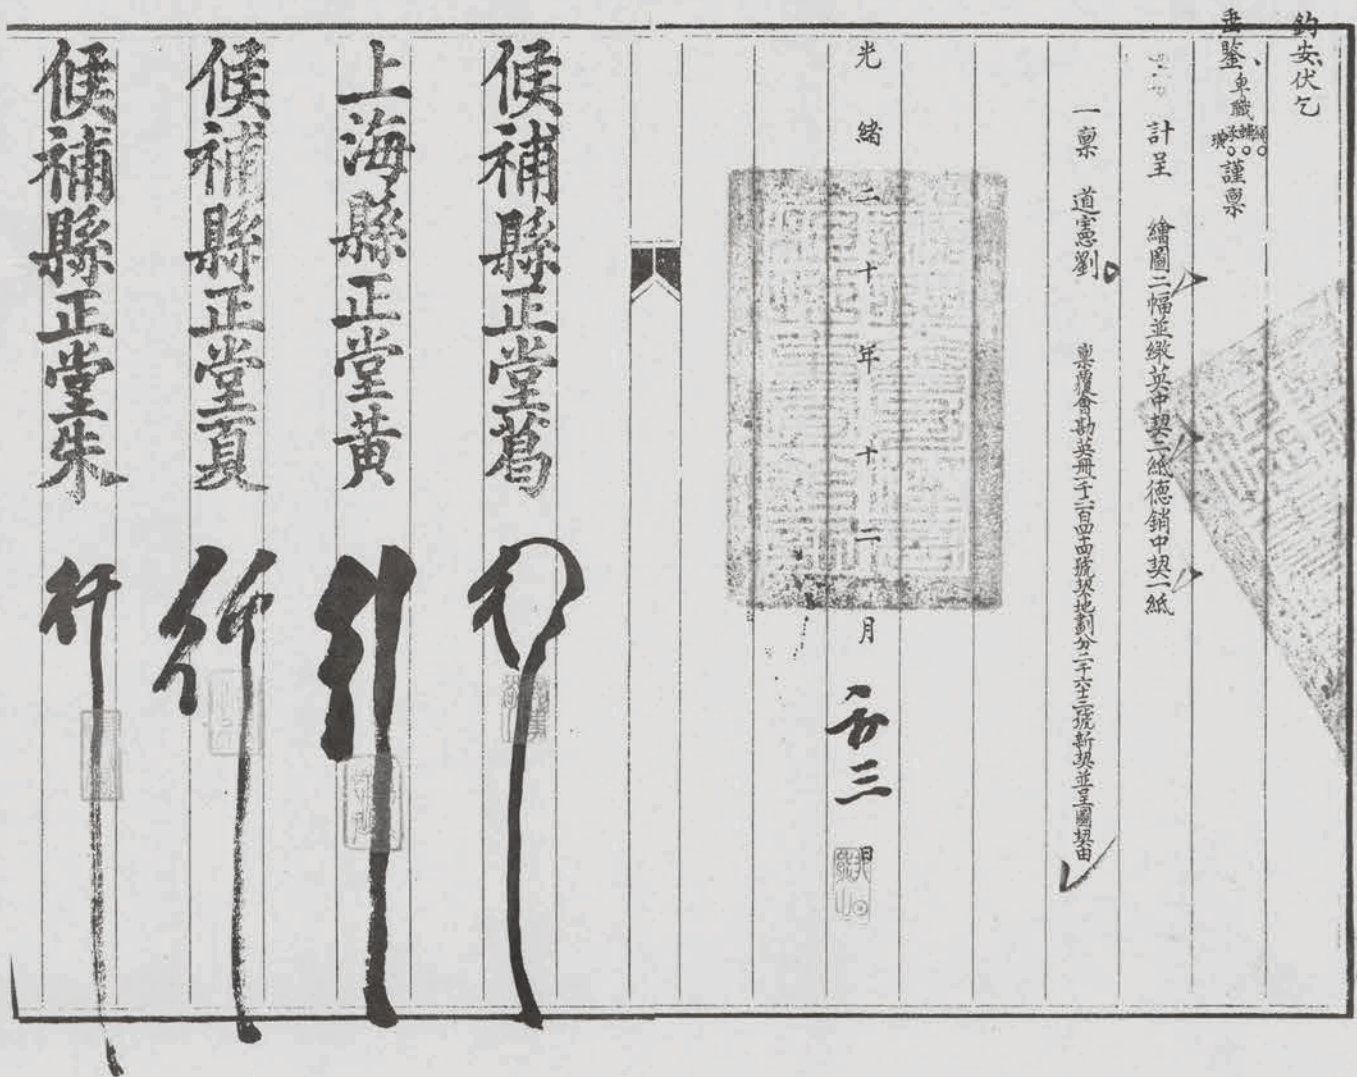 鈞安伏乞
垂鑒卑職謹稟
計呈 繪圖二幅並繳英中契二紙德銷中契一紙
一稟 道憲劉 稟覆會勘英冊一千二百四十四號契地劃分二千六十三號新契並呈圖契由
光緒二十年十二月 三 日
候補縣正堂葛 行
上海縣正堂黃 行
候補縣正堂夏 行
候補縣正堂朱 行